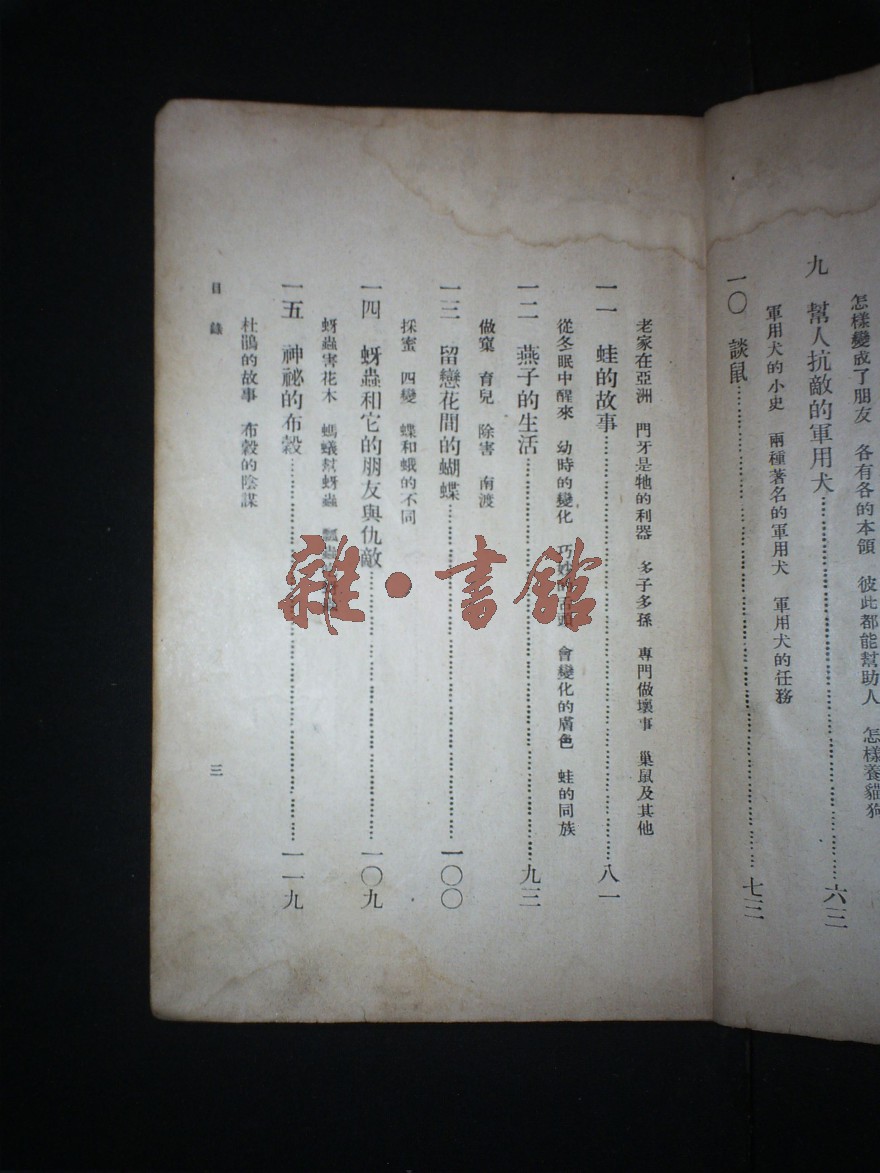 怎樣變成了朋友　各有各的本領　彼此都能幫助人　怎樣養貓狗
九　幫人抗敵的軍用犬……六三
軍用犬的小史　兩種著名的軍用犬　軍用犬的任務
一〇　談鼠……七三
老家在亞洲　門牙是牠的利器　多子多孫　專門做壞事　巢鼠及其他
一一　蛙的故事……八一
從冬眠中醒來　幼時的變化　巧妙　會變化的膚色　蛙的同族
一二　燕子的生活……九三
做窠　育兒　除害　南渡
一三　留戀花間的蝴蝶……一〇〇
採蜜　四變　蝶和蛾的不同
一四　蚜蟲和它的朋友與仇敵……一〇九
蚜蟲害花木　螞蟻幫蚜蟲　瓢蟲
一五　神祕的布穀……一一九
杜鵑的故事　布穀的陰謀
目錄
三
雜·書館